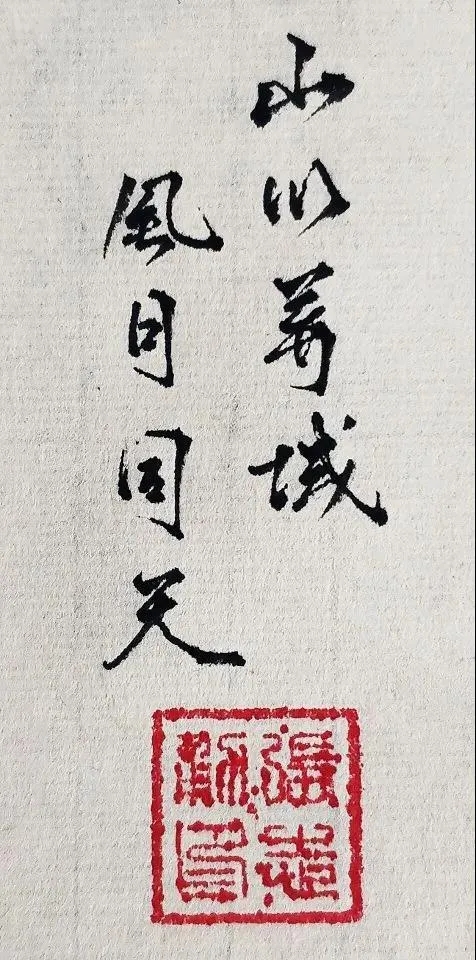 山川异域
風月同天